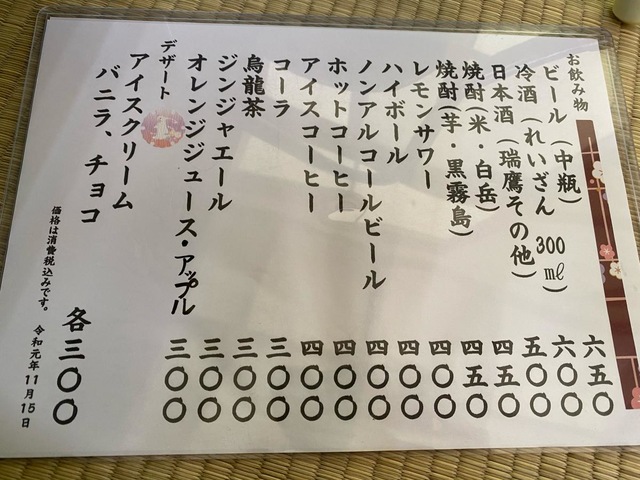 お飲み物
ビール（中瓶） 六五〇
冷酒（れいざん 300㎖） 六〇〇
日本酒（瑞鷹その他） 五〇〇
焼酎（米・白岳） 四五〇
焼酎（芋・黒霧島） 四五〇
レモンサワー 四〇〇
ハイボール 四〇〇
ノンアルコールビール 四〇〇
ホットコーヒー 四〇〇
アイスコーヒー 四〇〇
コーラ 三〇〇
烏龍茶 三〇〇
ジンジャエール 三〇〇
オレンジジュース・アップル 三〇〇
デザート
アイスクリーム
バニラ、チョコ 各三〇〇
価格は消費税込みです。 令和元年11月15日